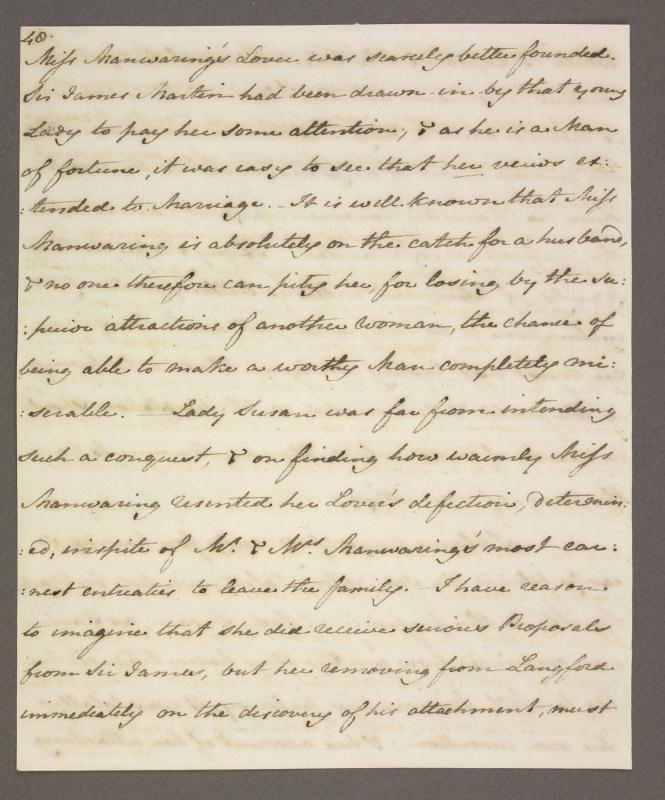 48.
Miss Manwaring's Lover was scarcely better founded.
Sir James Martin had been drawn in by that young
Lady to pay her some attention, & as he is a Man
of fortune, it was easy to see that her veiws ex:
:tended to Marriage. - It is well known that Miss
Manwaring is absolutely on the catch for a husband,
& no one therefore can pity her, for losing by the su:
:perior attractions of another Woman, the chance of
being able to make a worthy Man completely mi:
:serable. — Lady Susan was far from intending
such a conquest, & on finding how warmly Miss
Manwaring resented her Lover's defection, determin:
:ed, inspite of Mr. & Mrs. Manwaring's most ear:
:nest entreaties to leave the family. - I have reason
to imagine that she did receive serious Proposals
from Sir James, but her removing from Langford
immediately on the discovery of his attachment, must